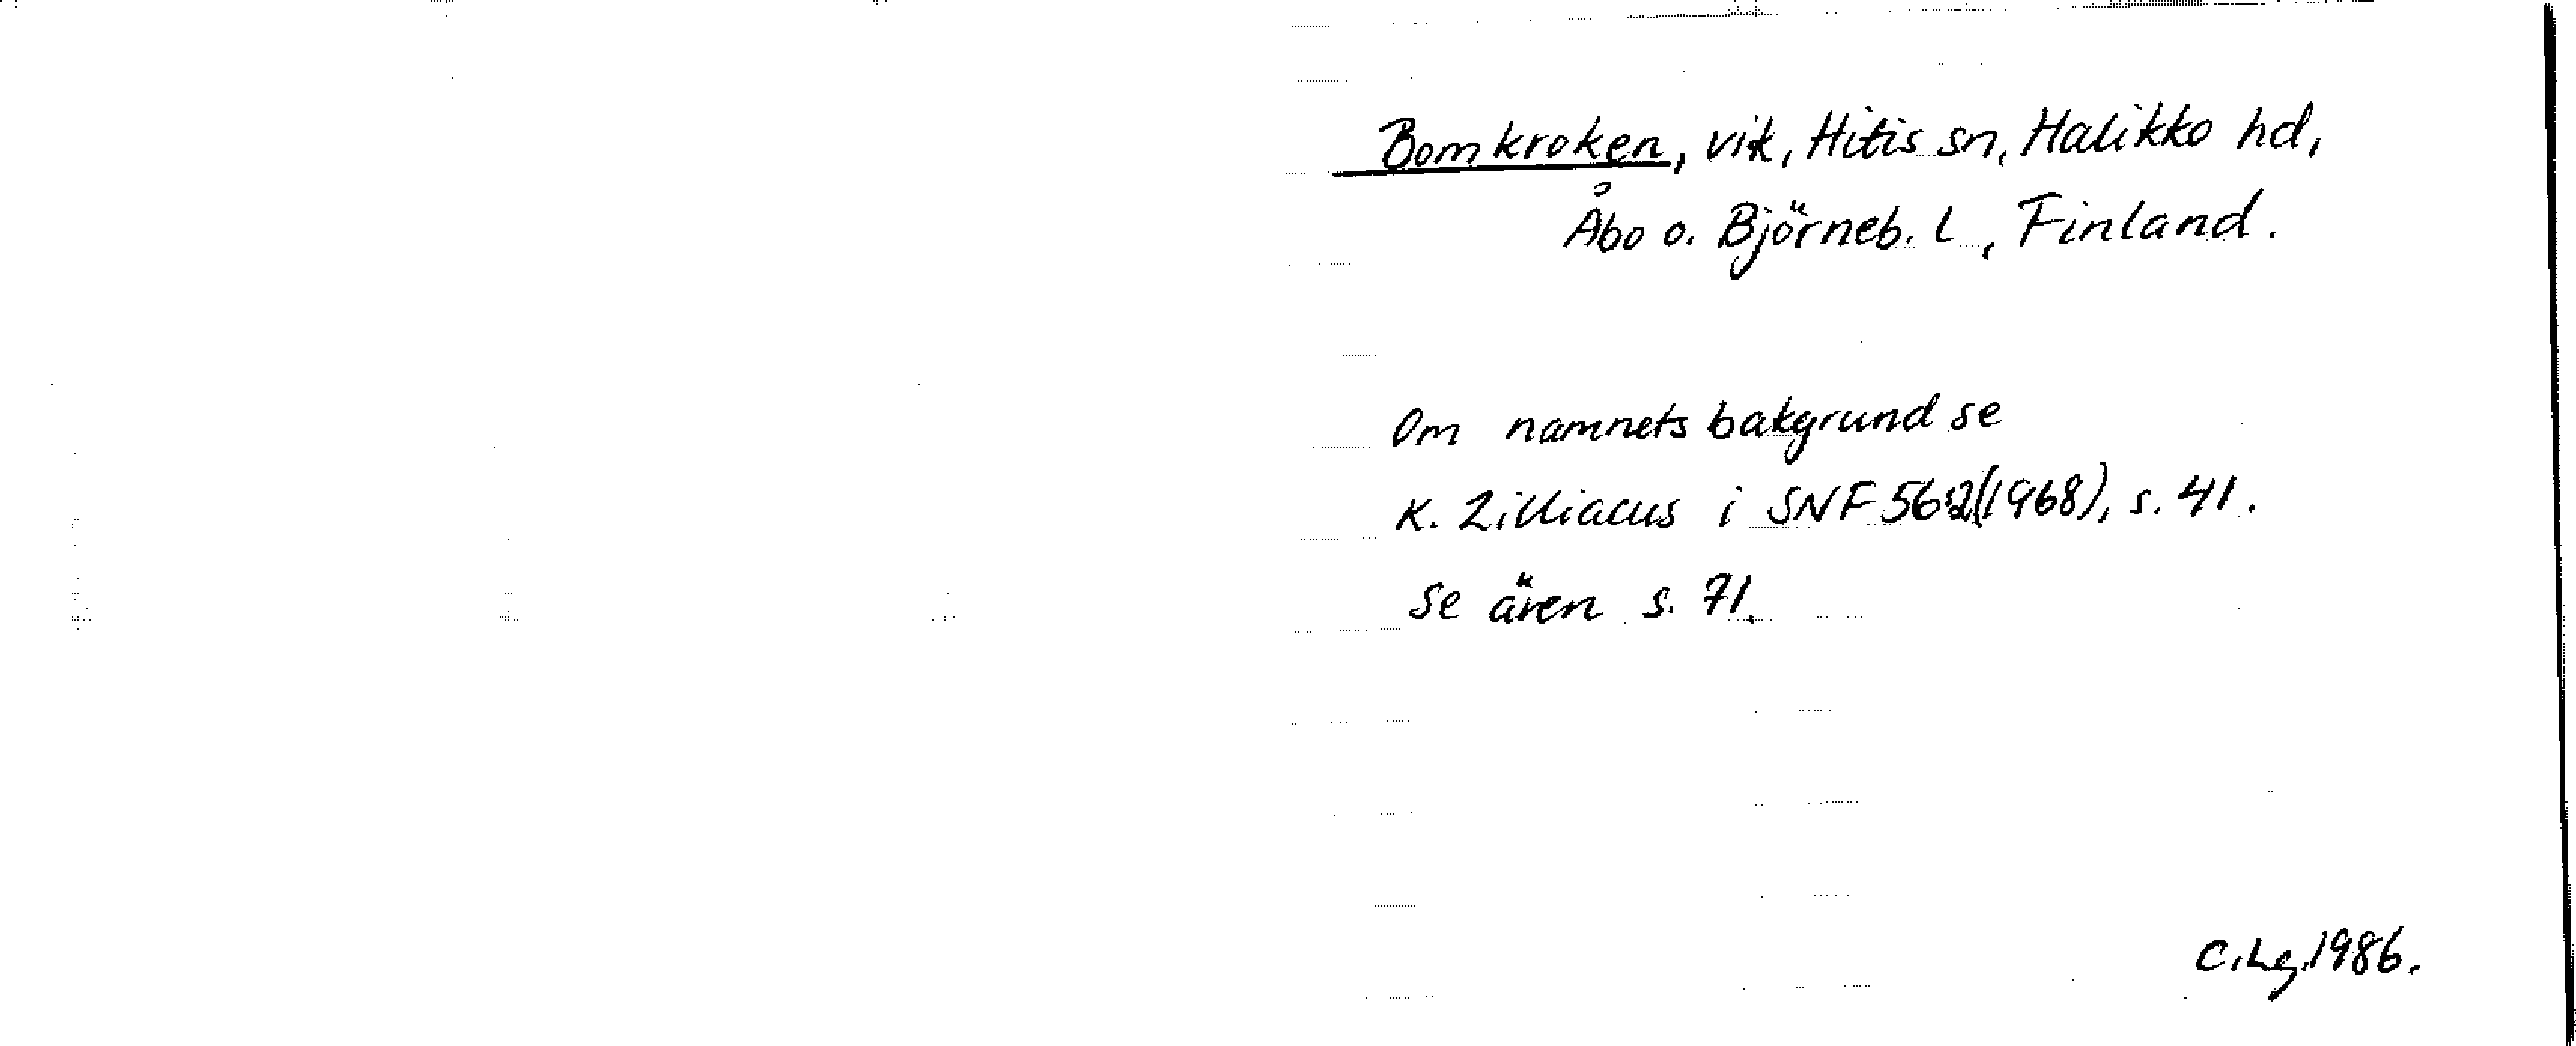 Bomkroken, vik, Hitis sn, Halikko hd,
Åbo o. Björneb. l., Finland.
Om namnets bakgrund se
K. Zilliacus i SNF 56:2 (1968), s. 41.
Se även s. 71.
C.Lg.1986.